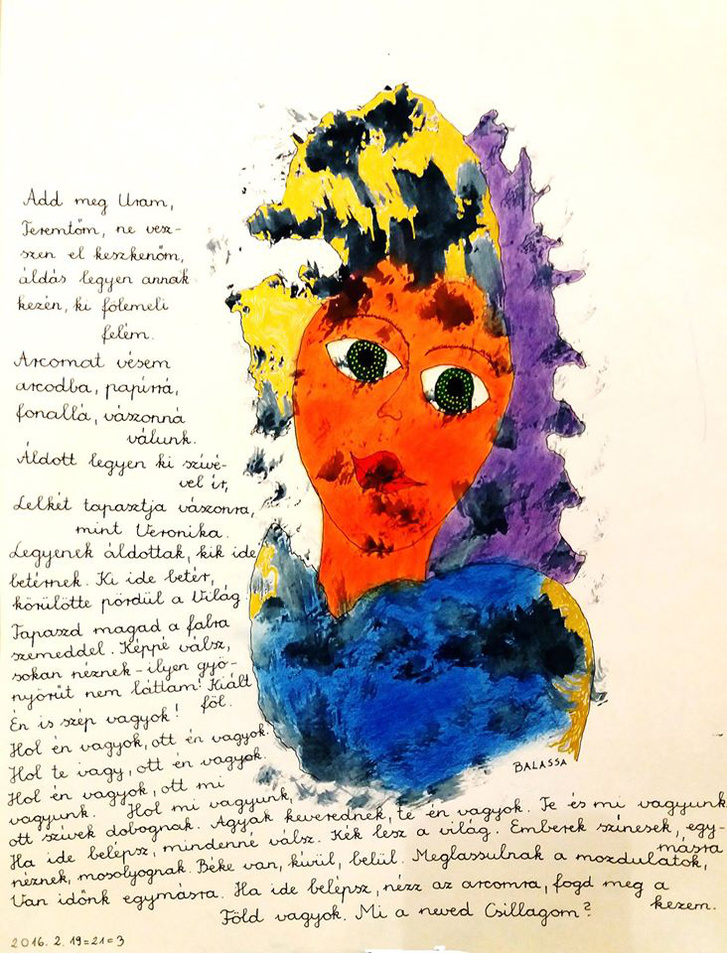 Add meg Uram,
Teremtőm, ne vesz-
szen el keszkenőm,
áldás legyen annak
kezén, ki fölemeli
felém.
Arcomat vésem
arcodba, papírrá,
fonallá, vászonná
válunk.
Áldott legyen ki szívé-
vel ír,
Lelkét tapasztja vászonra,
mint Veronika.
Legyenek áldottak, kik ide
betérnek. Ki ide betér,
körülötte pördül a Világ!
Tapaszd magad a falra
szemeddel. Képpé válsz,
sokan néznek - ilyen gyö-
nyörűt nem láttam! Kiált
föl.
Én is szép vagyok!
Hol én vagyok, ott én vagyok.
Hol te vagy, ott én vagyok.
Hol én vagyok, ott mi
vagyunk. Hol mi vagyunk,
ott szívek dobognak. Agyak keverednek, te én vagyok. Te és mi vagyunk
Ha ide belépsz, mindenné válsz. Kék lesz a világ. Emberek színesek, egy-
másra
néznek, mosolyognak. Béke van, kívül, belül. Meglassulnak a mozdulatok,
Van időnk egymásra. Ha ide belépsz, nézz az arcomra, fogd meg a
kezem.
Föld vagyok. Mi a neved Csillagom?
BALASSA
2016. 2. 19=21=3